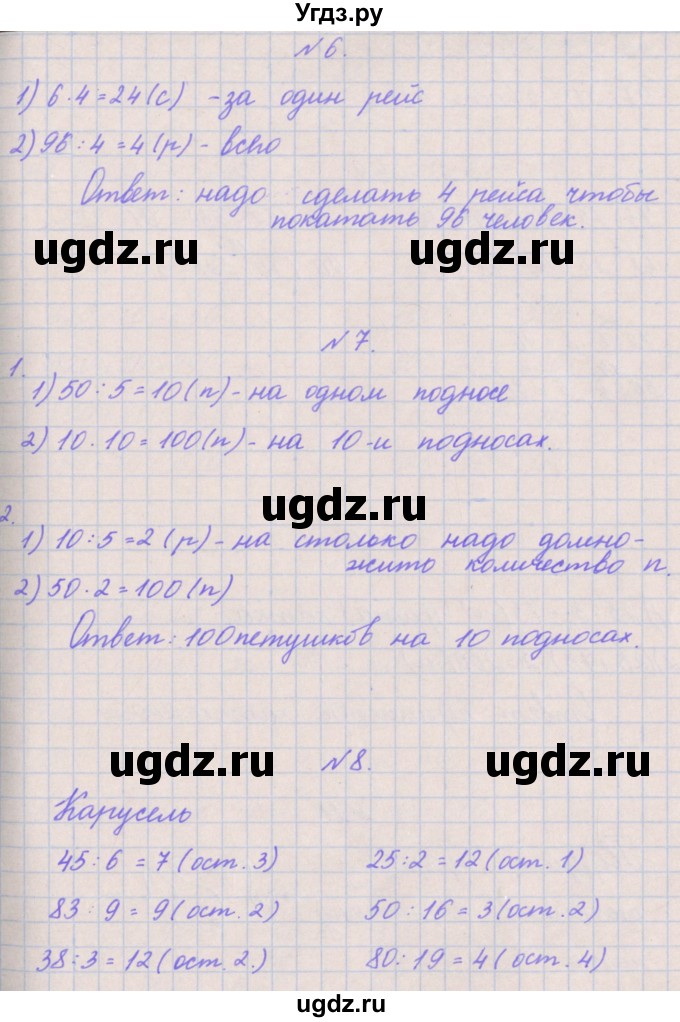 Угдз.ру
№6.
1) 6·4=24(с) -за один рейс
2) 96:4=4(р)- всего
Ответ: надо сделать 4 рейса чтобы
покатать 96 человек.
ugdz.ru ugdz.ru
№7.
1.
1) 50:5=10(п)-на одном подносе
2) 10·10=100(п)- на 10-и подносах.
ugdz.ru
2.
1) 10:5=2(р)-на столько надо домно-
жито количество п.
2) 50·2=100(п)
Ответ: 100петушков на 10 подносах.
ugdz.ru №8. ugdz.ru
Карусель
45:6=7(ост.3) 25:2=12(ост.1)
83:9=9(ост.2) 50:16=3(ост.2)
38:3=12(ост.2.) 80:19=4(ост.4)
ugdz.ru